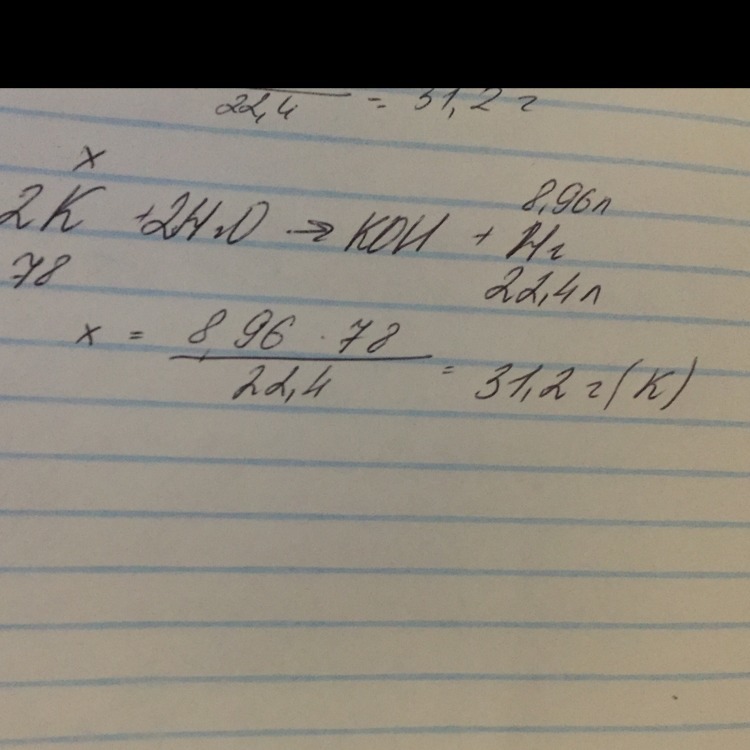 22,4 = 31,2 г
x 8,96л
2K +2H₂O → KOH + H₂
78 22,4л
x = 8,96 · 78 / 22,4 = 31,2 г (K)